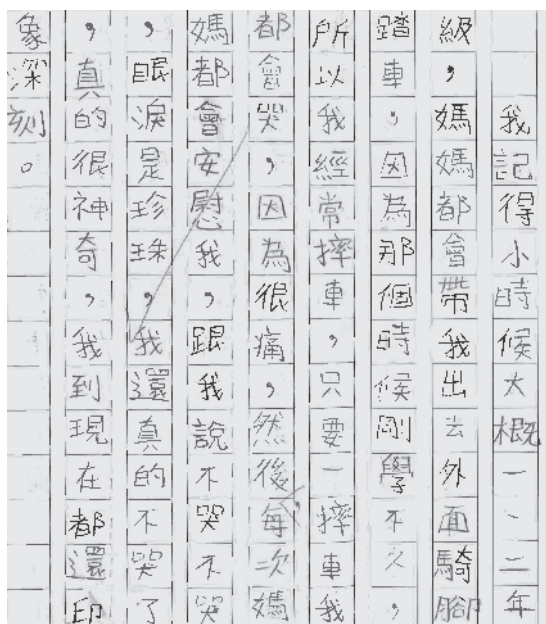 我記得小時候大概一、二年
級，媽媽都會帶我出去外面騎腳
踏車，因為那個時候剛學不久，
所以我經常摔車，只要一摔車我
都會哭，因為很痛，然後每次媽
媽都會安慰我跟我說不哭不哭
，眼淚是珍珠，我還真的不哭了
，真的很神奇，我到現在都還印
象深刻。